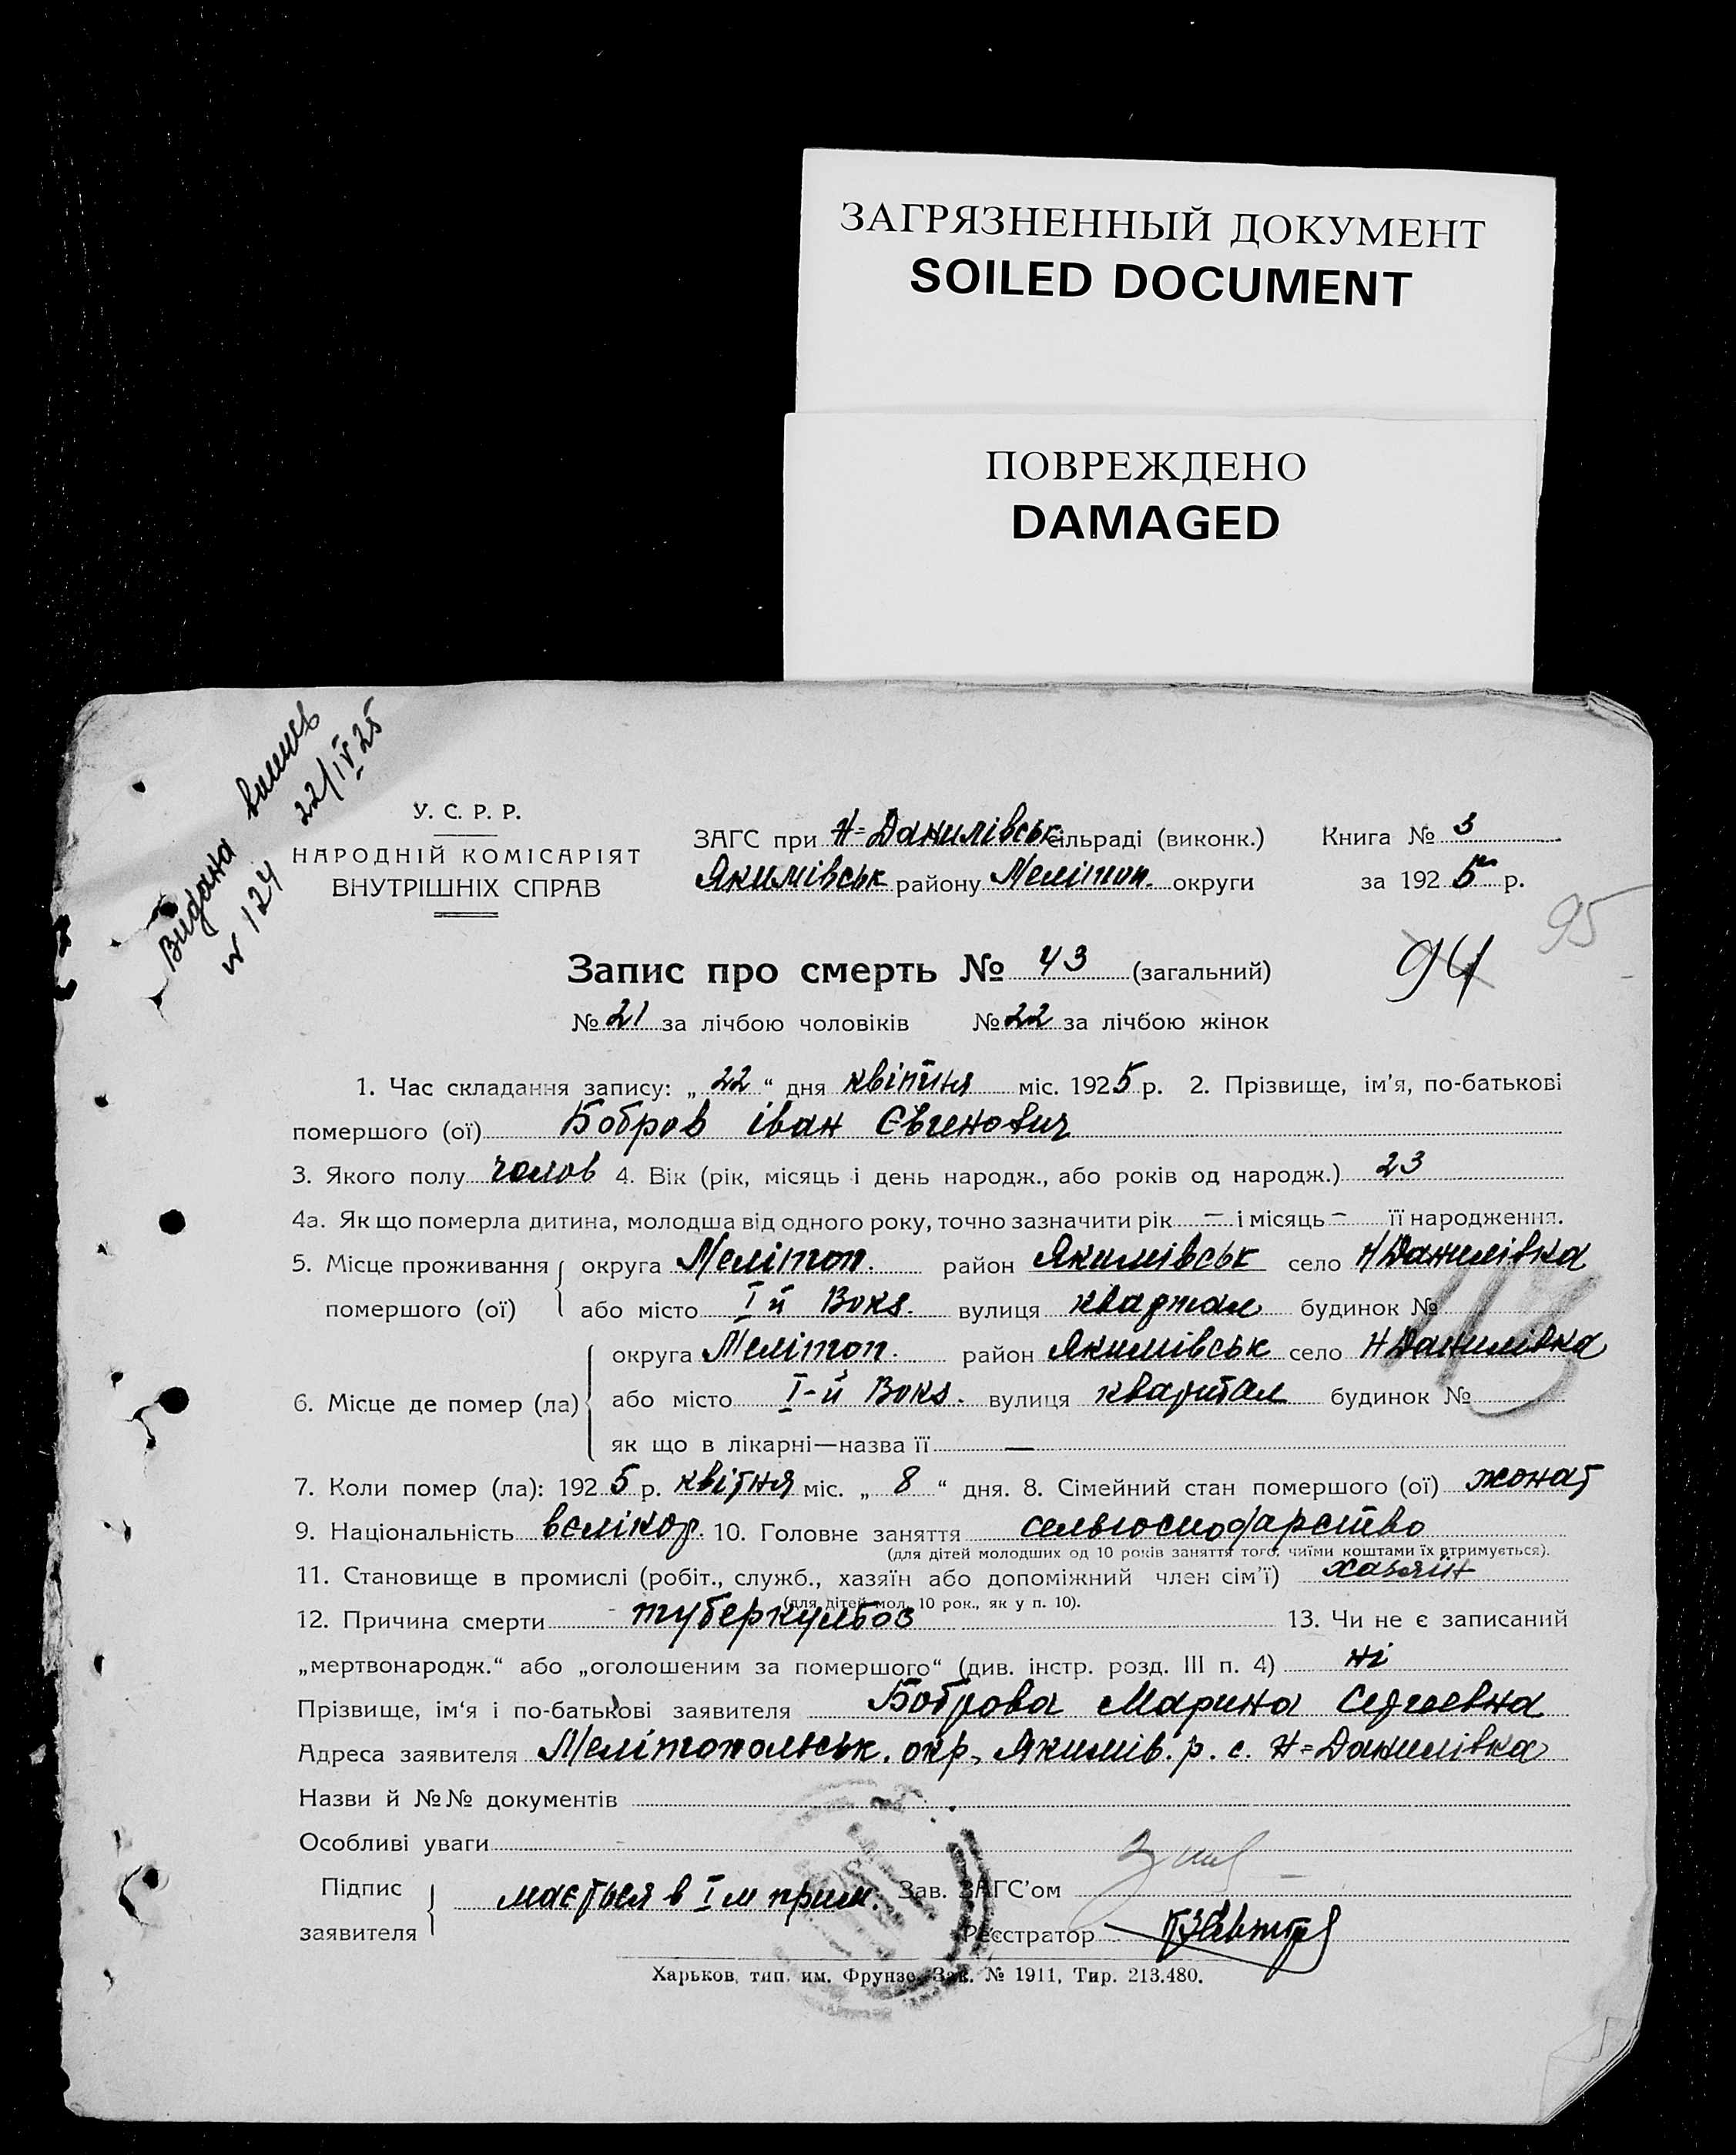 ЗАГРЯЗНЕННЫЙ ДОКУМЕНТ
SOILED DOCUMENT
ПОВРЕЖДЕНО
DAMAGED
Видана
№ 124 22/IV 25
У. С. Р. Р.
НАРОДНІЙ КОМІСАРІЯТ
ВНУТРІШНІХ СПРАВ
ЗАГС при Н=Данилівськ сільраді (виконк.) Книга № 3
Якимівськ району Мелітоп. округи за 1925 р.
95
Запис про смерть № 43 (загальний) 94
№ 21 за лічбою чоловіків № 22 за лічбою жінок
1. Час складання запису: „22“ дня квітня міс. 1925 р. 2. Прізвище, ім'я, по-батькові
помершого (ої) Бобров іван Євгенович
3. Якого полу чолов 4. Вік (рік, місяць і день народж., або років од народж.) 23
4а. Як що померла дитина, молодша від одного року, точно зазначити рік — і місяць — її народження.
5. Місце проживання округа Мелітоп. район Якимівськ село Н Данилівка
помершого (ої) або місто I й Вокз. вулиця квартал будинок №
113
округа Мелітоп. район Якимівськ село Н Данилівка
6. Місце де помер (ла) або місто I-й Вокз. вулиця квартал будинок №
як що в лікарні—назва її —
7. Коли помер (ла): 1925 р. квітня міс. „8“ дня. 8. Сімейний стан помершого (ої) жонат
9. Національність велікор. 10. Головне заняття сельгосподарство
(для дітей молодших од 10 років заняття того, чиїми коштами їх втримується).
11. Становище в промислі (робіт., служб., хазяїн або допоміжний член сім'ї) хазяїн
(для дітей мол. 10 рок., як у п. 10).
12. Причина смерти туберкульоз 13. Чи не є записаний
„мертвонародж.“ або „оголошеним за помершого“ (див. інстр. розд. III п. 4) ні
Прізвище, ім'я і по-батькові заявителя Боброва Марина Сергеевна
Адреса заявителя Мелітопольськ. окр, Якимів. р. с. Н=Данилівка
Назви й №№ документів
Особливі уваги
Підпис заявителя мається в I м прим. Зав. ЗАГС'ом
Реєстратор
Харьков, тип. им. Фрунзе. Зак. № 1911, Тир. 213.480.